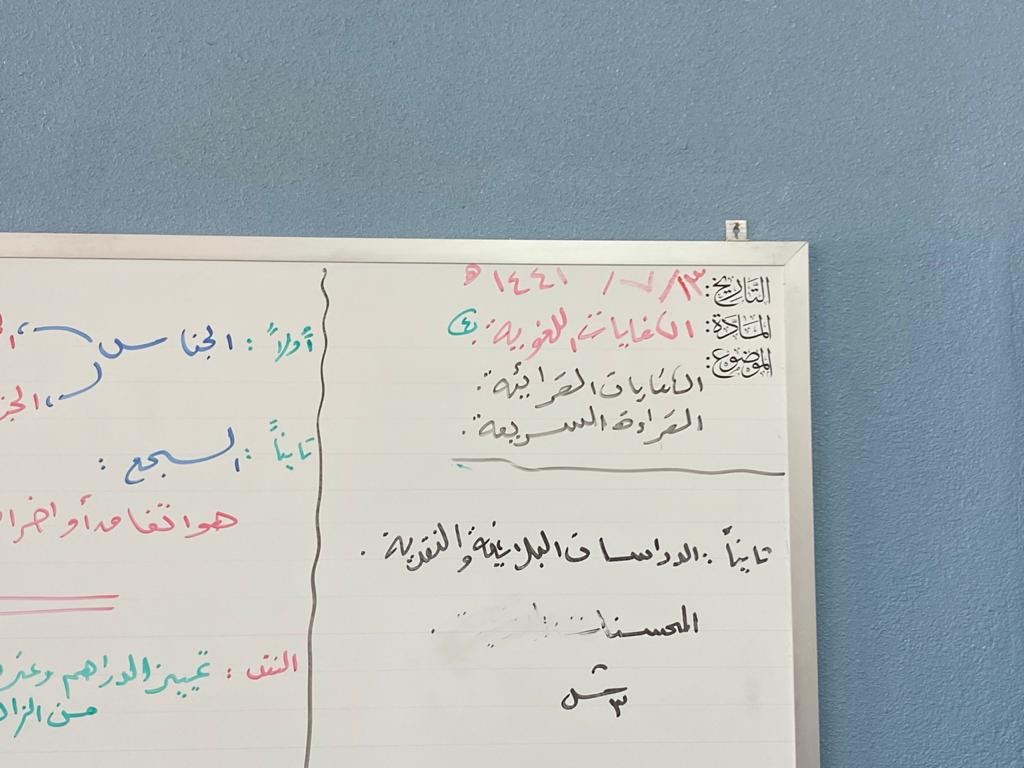 التاريخ: ١٣/ ٧/ ١٤٤١ هـ
المادة: الكفايات اللغوية: ٤
الموضوع:
الكفايات القرائية:
القراءة السريعة:
ثانياً: الدراسات البلاغية والنقدية.
المحسنات
أولاً: الجناس
ثانياً: السجع:
هو اتفاق أو
النقد: تمييز الدراهم
من